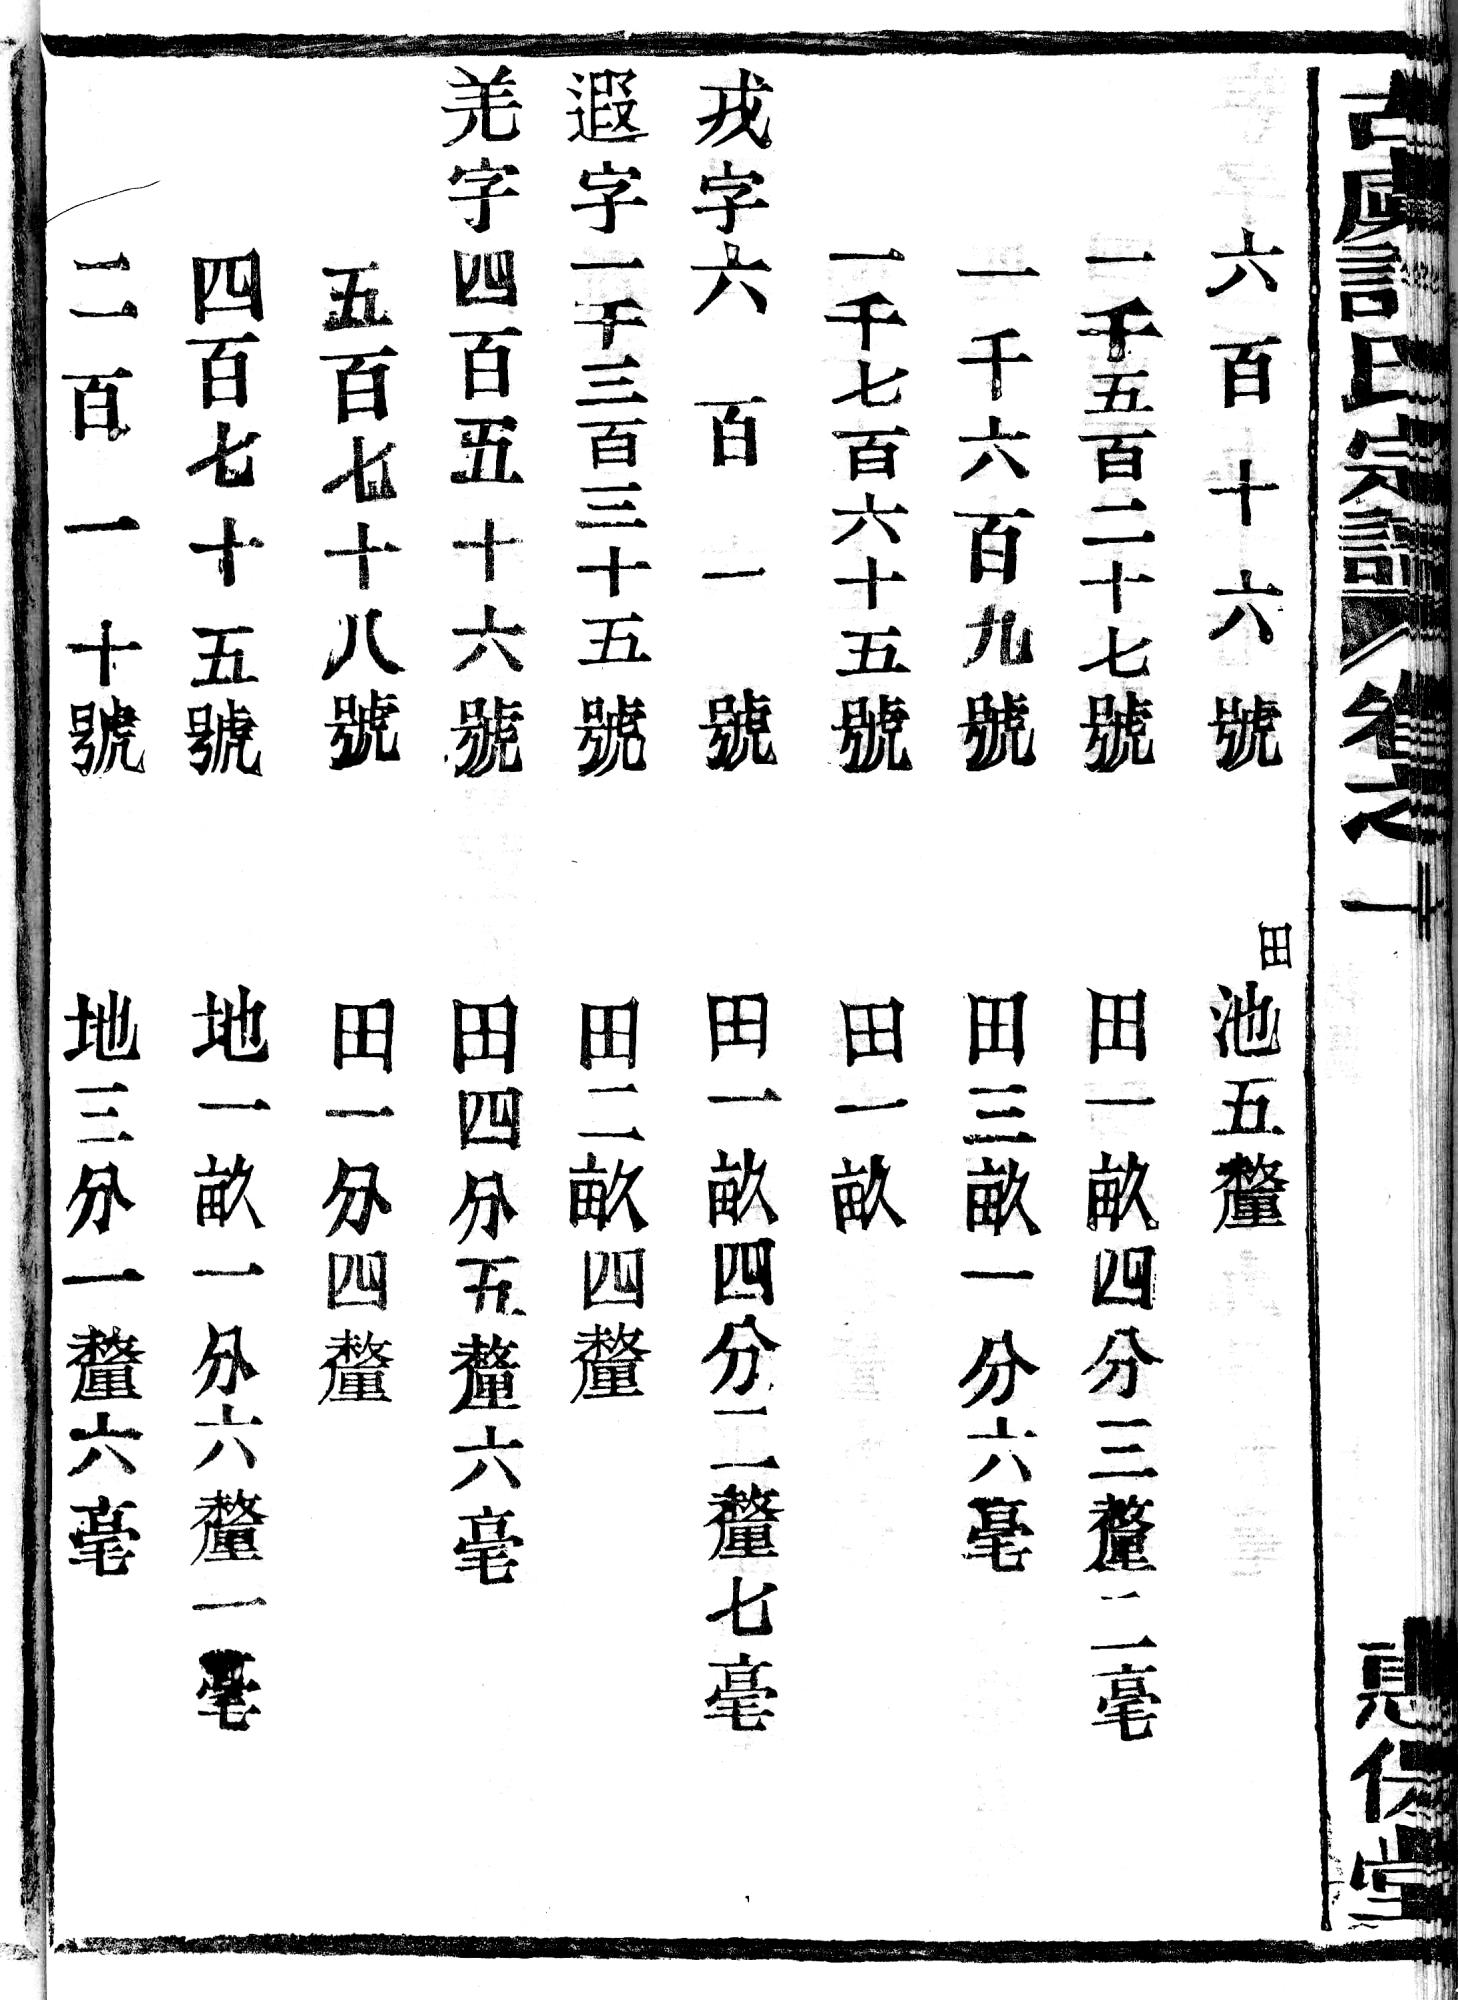 古虞許氏宗譜 卷之十一
六百十六號 田池五釐
一千五百二十七號 田一畝四分三釐二毫
一千六百九號 田三畝一分六毫
一千七百六十五號 田一畝
戎字六百一號 田一畝四分二釐七毫
遐字一千三百三十五號 田二畝四釐
羌字四百五十六號 田四分五釐六毫
五百七十八號 田一分四釐
四百七十五號 地一畝一分六釐一毫
二百一十號 地三分一釐六毫